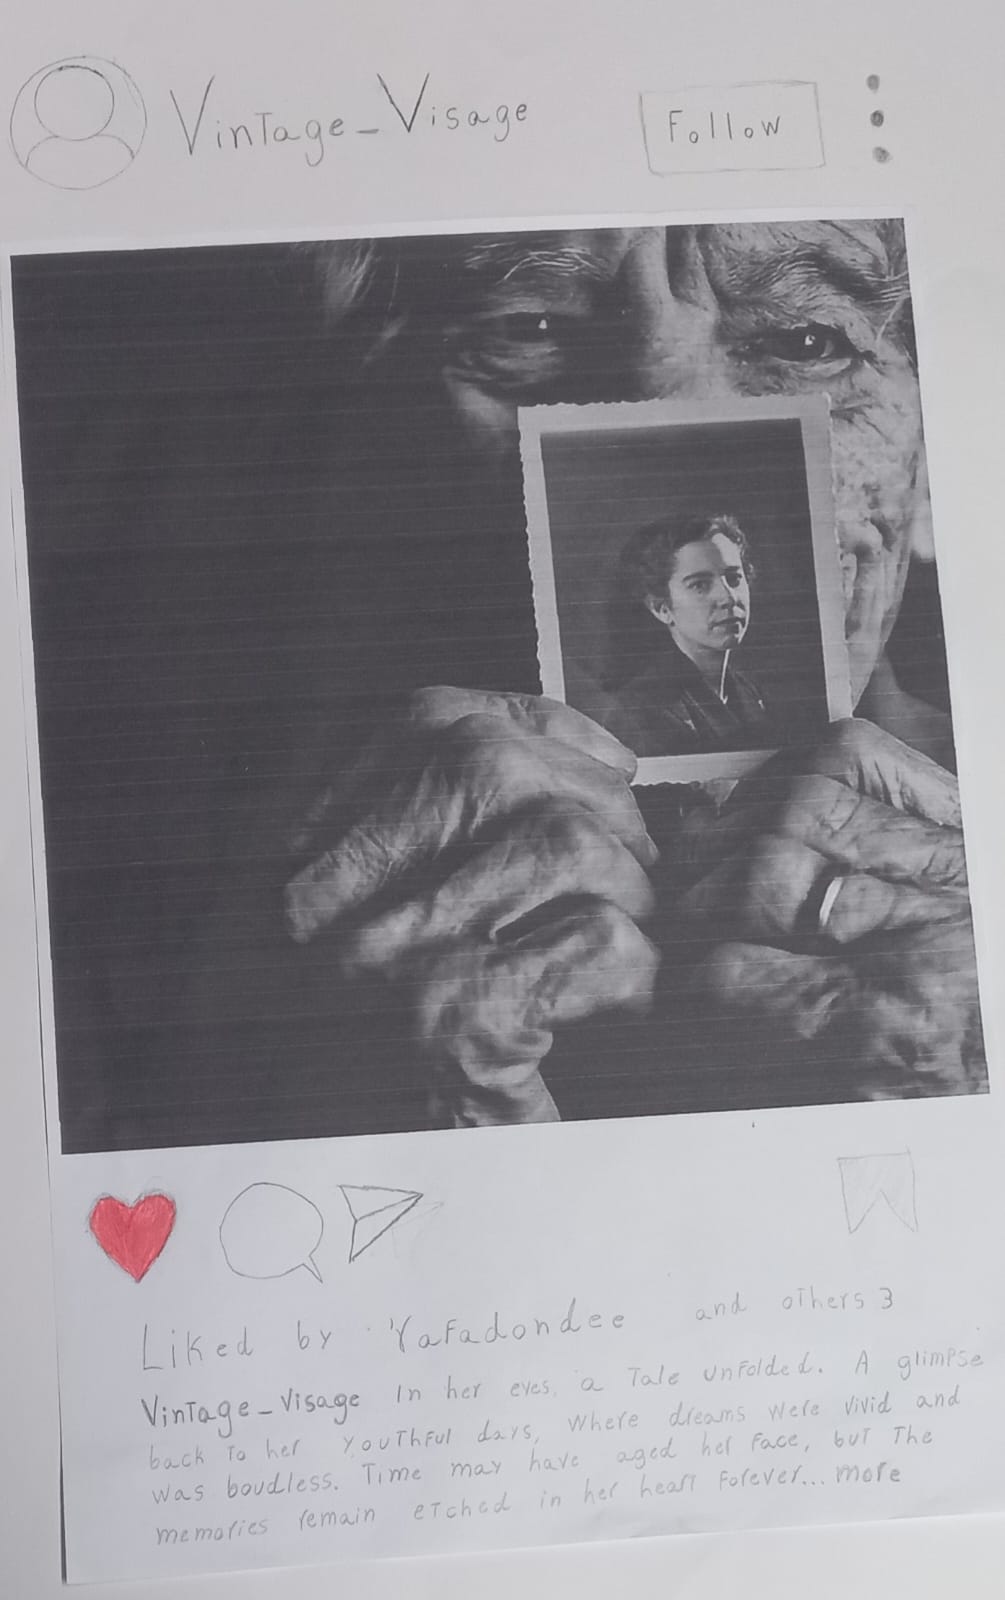 Vintage_Visage
Follow
Liked by Yafadondee and others 3
Vintage_Visage In her eyes, a Tale unfolded. A glimpse
back to her youthful days, where dreams were vivid and
was boudless. Time may have aged her face, but the
memories remain etched in her heart forever... more